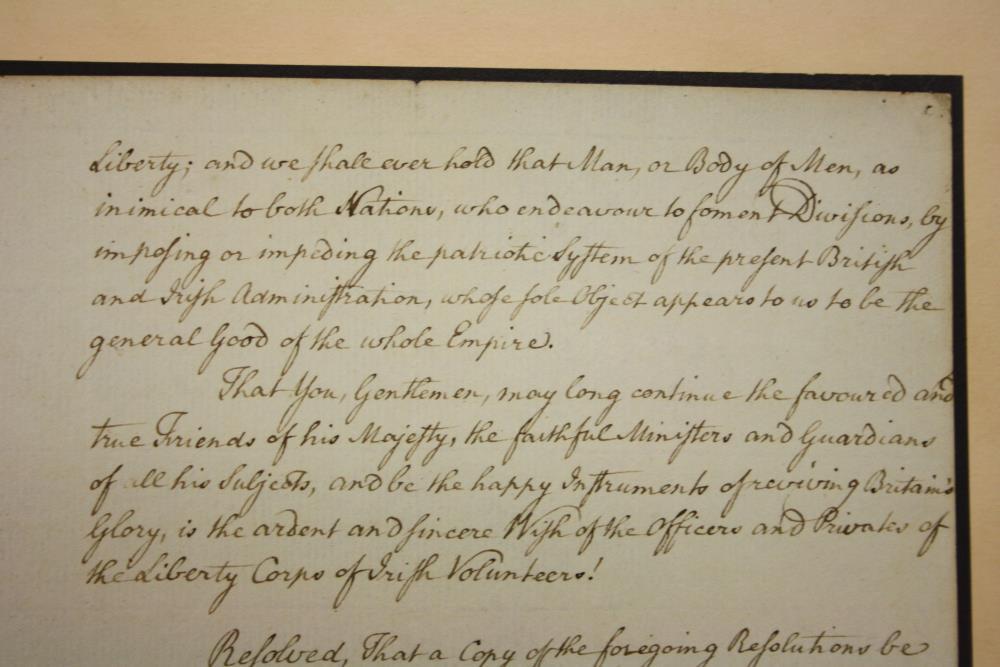 Liberty; and we shall ever hold that Man, or Body of Men, as
inimical to both Nations, who endeavour to foment Divisions, by
imposing or impeding the patriotic System of the present British
and Irish Administration, whose sole Object appears to us to be the
general Good of the whole Empire.
That You, Gentlemen, may long continue the favoured and
true Friends of his Majesty, the faithful Ministers and Guardians
of all his Subjects, and be the happy Instruments of reviving Britain's
Glory, is the ardent and sincere Wish of the Officers and Privates of
the Liberty Corps of Irish Volunteers!
Resolved, That a Copy of the foregoing Resolutions be